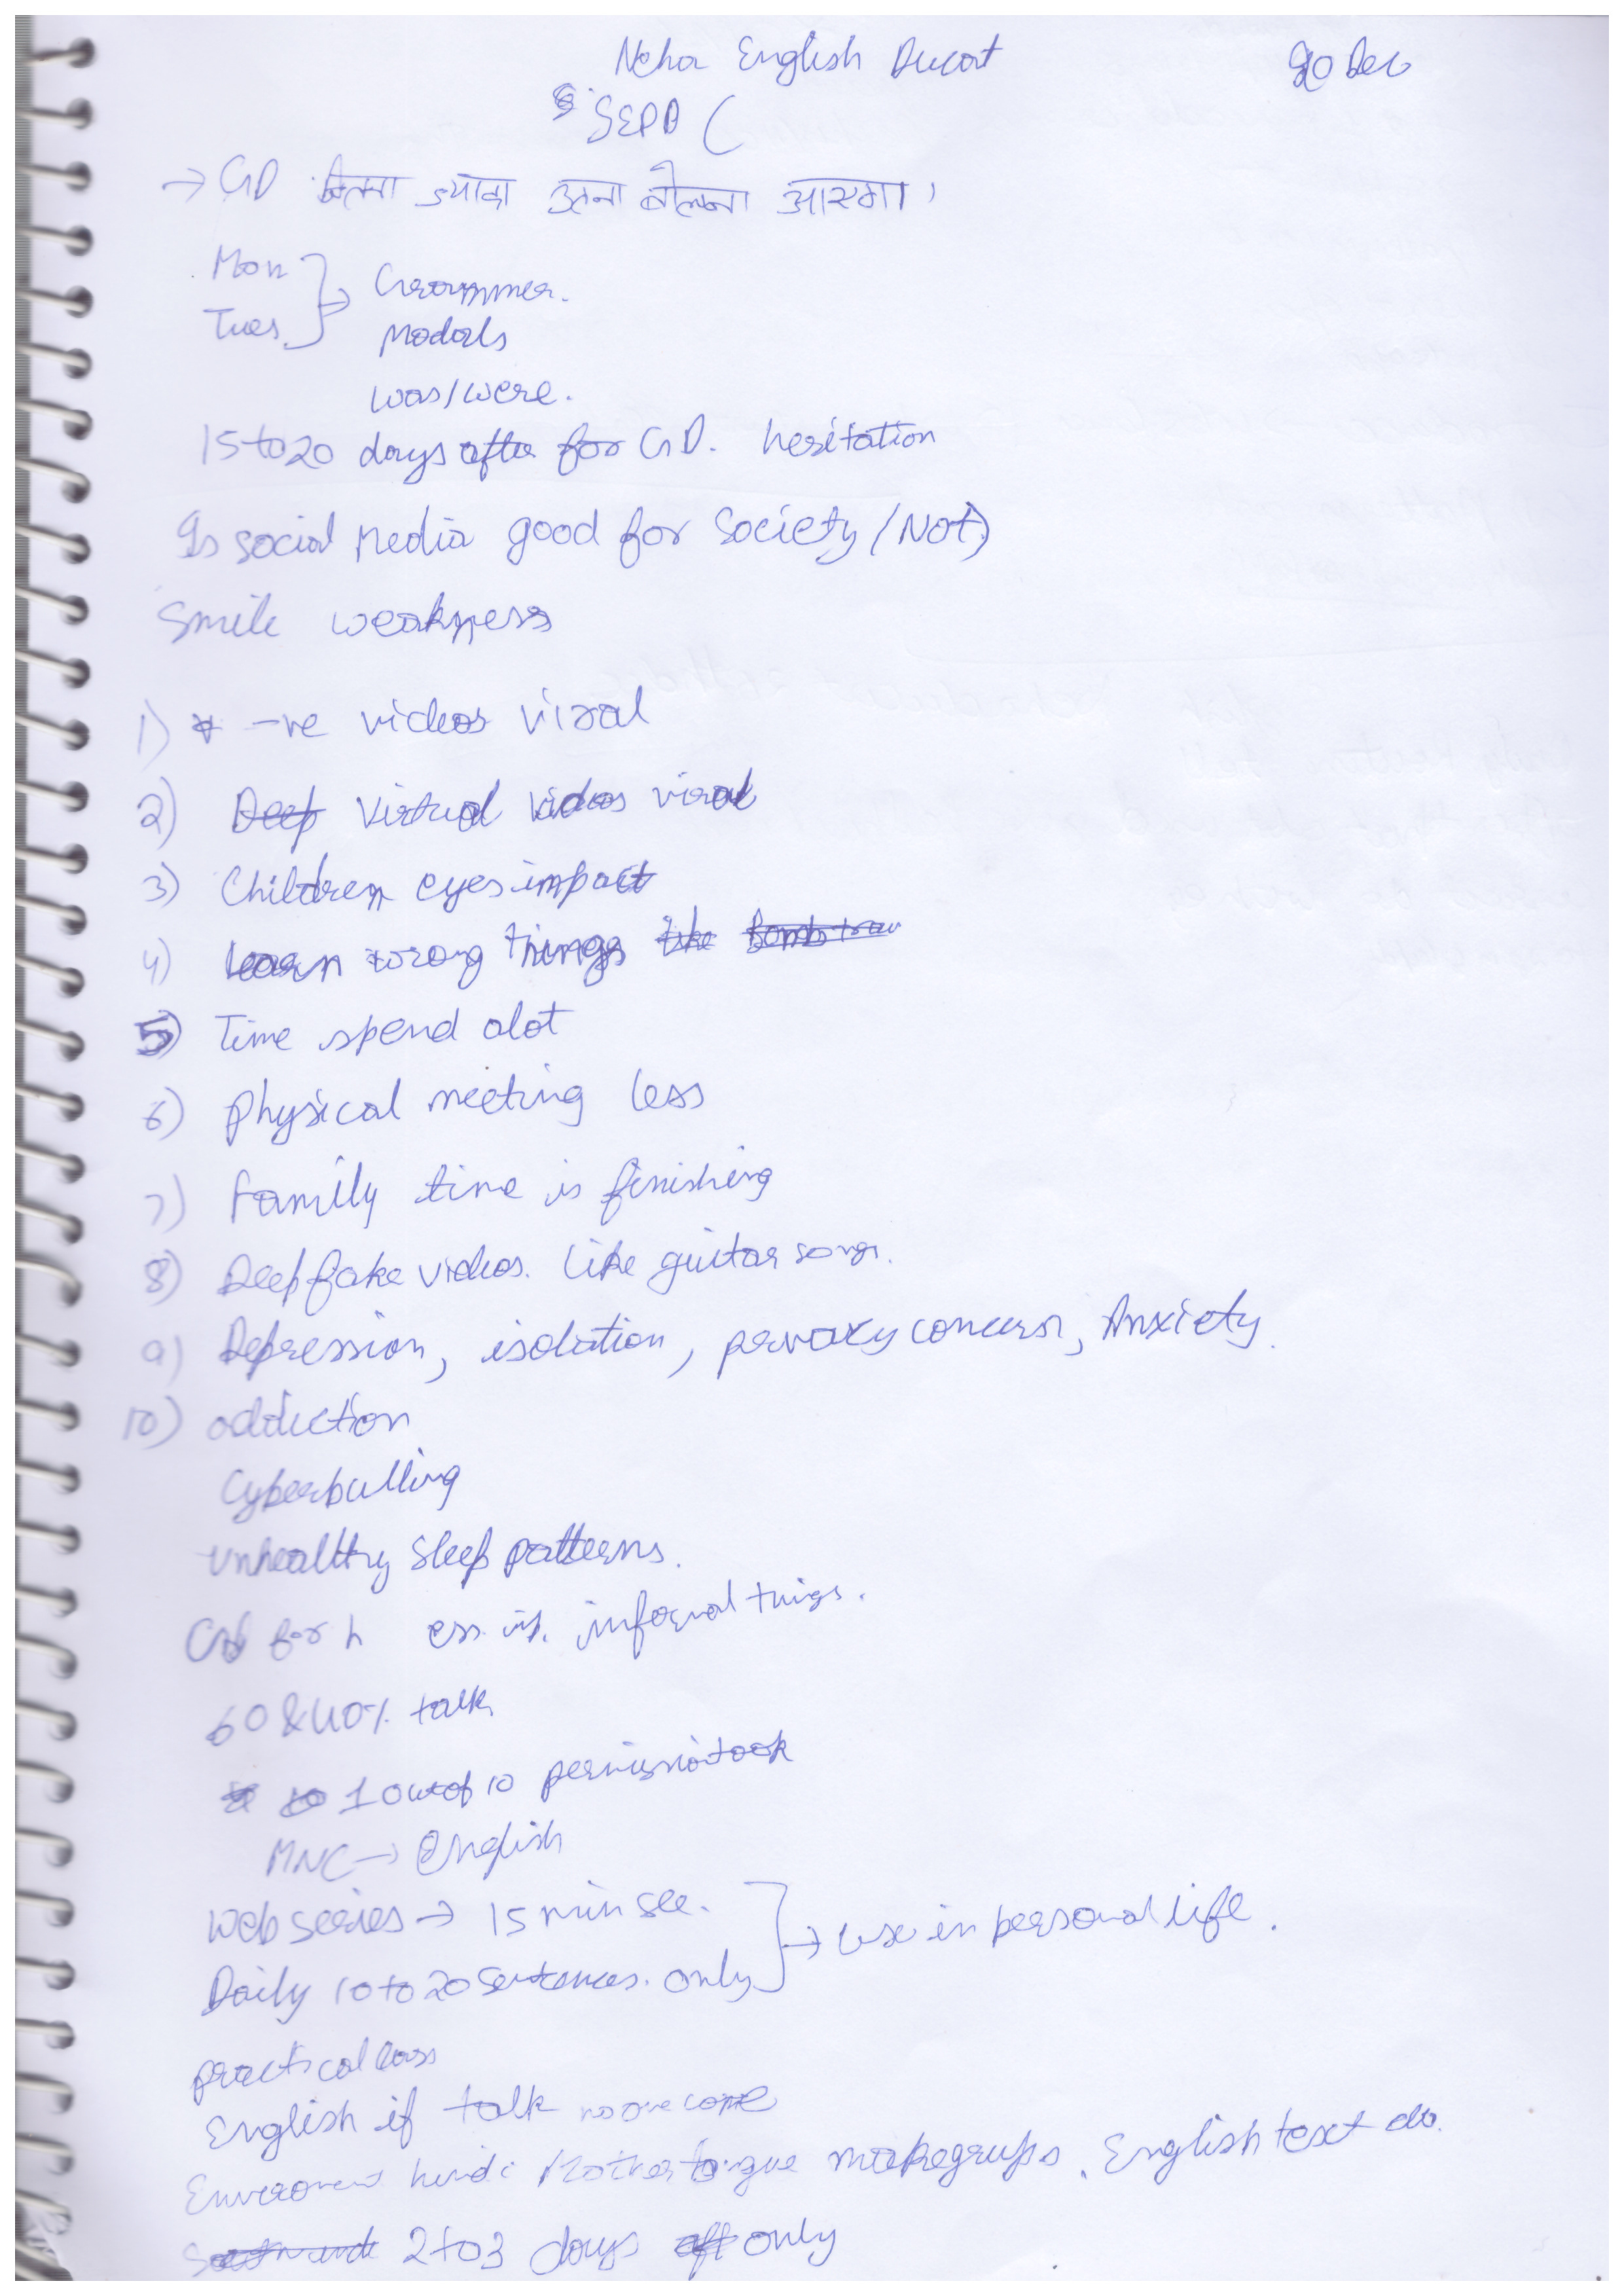 Neha English Ducat 20 Dec
SEPD (
→ GD जितना ज्यादा उतना बोलना आएगा।
Mon
Tues. } → Grammer.
Modals
was/were.
15 to 20 days after for GD. hesitation
Is social Media good for Society / (Not)
Smile weakness
1) -ve videos viral
2) Deep Virtual videos viral
3) Children eyes impact
4) learn wrong things like
5) Time spend alot
6) Physical meeting less
7) Family time is finishing
8) Deepfake videos. like guitar songs.
9) Depression, isolation, pervacy concern, Anxiety.
10) addiction
Cyberbulling
unhealthy sleep patterns.
for informal things.
60 & 40% talk
1 out of 10 took
MNC → English
Web series → 15 min see.
Daily 10 to 20 Sentences. only } → use in personal life.
practical
English if talk no one come
Enveroment hindi Mother tongue make grups. English text do.
2 to 3 days only